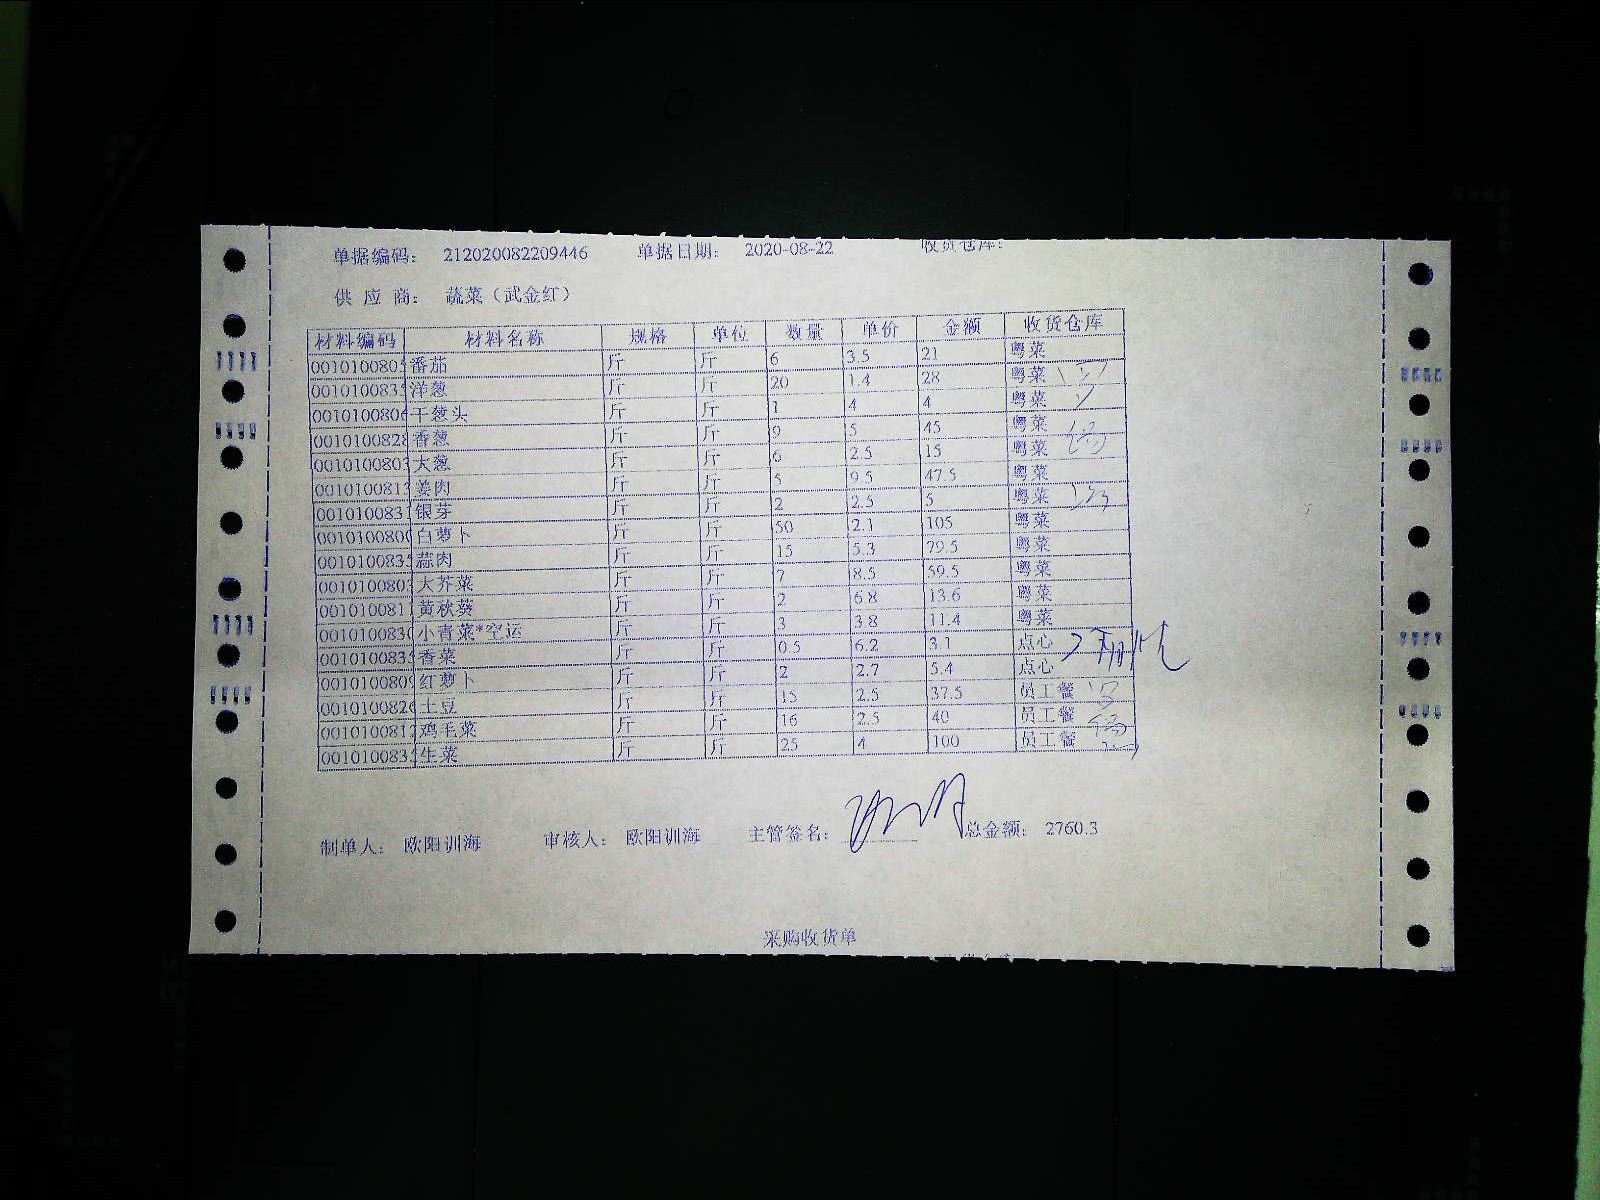 单据编码： 212020082209446 单据日期： 2020-08-22 收货仓库：
供 应 商： 蔬菜（武金红）
材料编码 材料名称 规格 单位 数量 单价 金额 收货仓库
0010100805 番茄 斤 斤 6 3.5 21 粤菜
001010083 洋葱 斤 斤 20 1.4 28 粤菜
0010100806 干葱头 斤 斤 1 4 4 粤菜
0010100828 香葱 斤 斤 9 5 45 粤菜
0010100803 大葱 斤 斤 6 2.5 15 粤菜
0010100813 姜肉 斤 斤 5 9.5 47.5 粤菜
001010083 银芽 斤 斤 2 2.5 5 粤菜
0010100800 白萝卜 斤 斤 50 2.1 105 粤菜
001010083 蒜肉 斤 斤 15 5.3 79.5 粤菜
0010100803 大芥菜 斤 斤 7 8.5 59.5 粤菜
0010100811 黄秋葵 斤 斤 2 6.8 13.6 粤菜
0010100830 小青菜*空运 斤 斤 3 3.8 11.4 粤菜
001010083 香菜 斤 斤 0.5 6.2 3.1 点心
0010100809 红萝卜 斤 斤 2 2.7 5.4 点心
0010100826 土豆 斤 斤 15 2.5 37.5 员工餐
0010100812 鸡毛菜 斤 斤 16 2.5 40 员工餐
001010083 生菜 斤 斤 25 4 100 员工餐
制单人： 欧阳训海 审核人： 欧阳训海 主管签名： 总金额： 2760.3
采购收货单